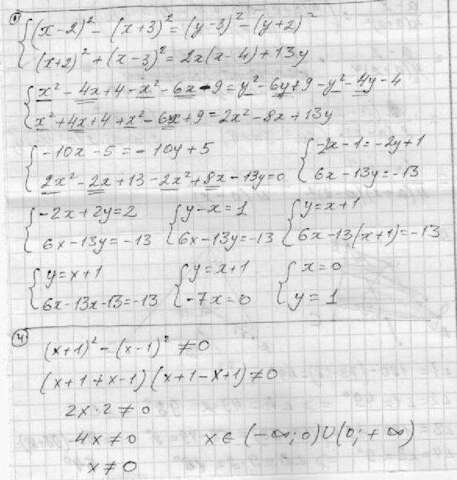 1) { (x-2)² - (x+3)² = (y-3)² - (y+2)²
(x+2)² + (x-3)² = 2x(x-4) + 13y
{ x² - 4x + 4 - x² - 6x - 9 = y² - 6y + 9 - y² - 4y - 4
x² + 4x + 4 + x² - 6x + 9 = 2x² - 8x + 13y
{ -10x - 5 = -10y + 5 { -2x - 1 = -2y + 1
2x² - 2x + 13 - 2x² + 8x - 13y = 0 6x - 13y = -13
{ -2x + 2y = 2 { y - x = 1 { y = x + 1
6x - 13y = -13 6x - 13y = -13 6x - 13(x+1) = -13
{ y = x + 1 { y = x + 1 { x = 0
6x - 13x - 13 = -13 -7x = 0 y = 1
4)
(x+1)² - (x-1)² ≠ 0
(x+1+x-1)(x+1-x+1) ≠ 0
2x·2 ≠ 0
4x ≠ 0 x ∈ (-∞; 0) ∪ (0; +∞)
x ≠ 0